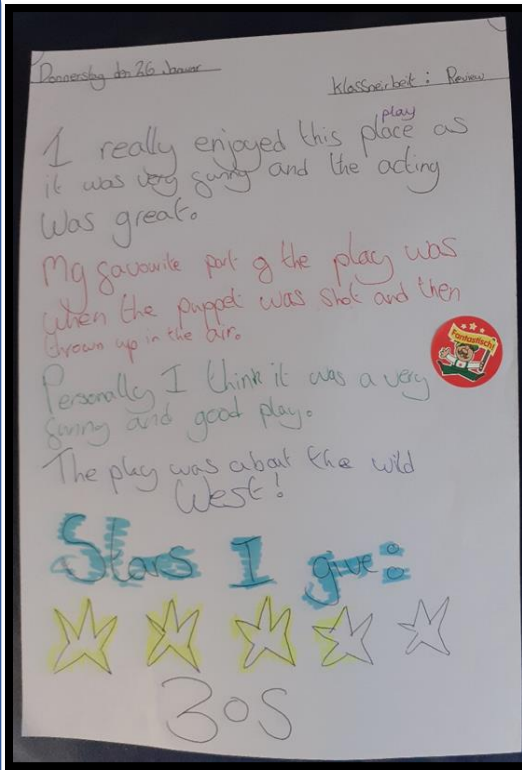 Donnerstag den 26 Januar
Klassneirbeit : Review
play
I really enjoyed this place as
it was very funny and the acting
was great.
My favourite part of the play was
when the puppet was shot and then
thrown up in the air.
Fantastisch!
Personally I think it was a very
funny and good play.
The play was about the wild
West!
Stars I give:
3.5